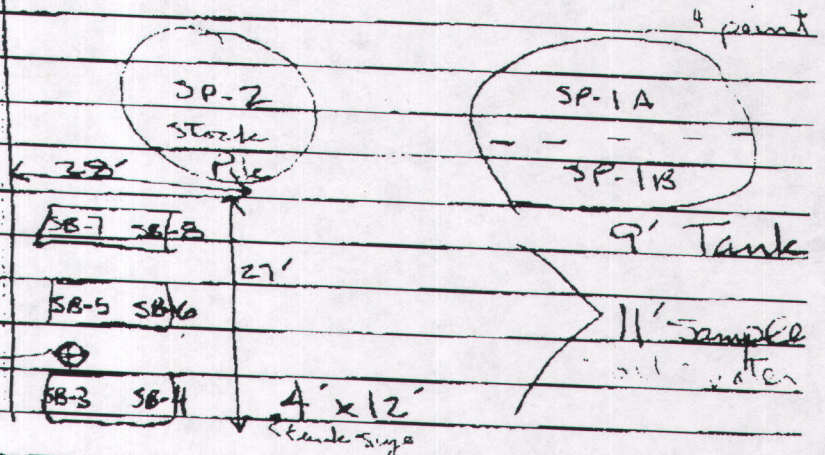 4 point
SP-2
SP-1A
Stock
Pile
SP-1B
28'
SB-7 SB-8
9' Tank
27'
SB-5 SB-6
11' Sample
SB-3 SB-4
4' x 12'